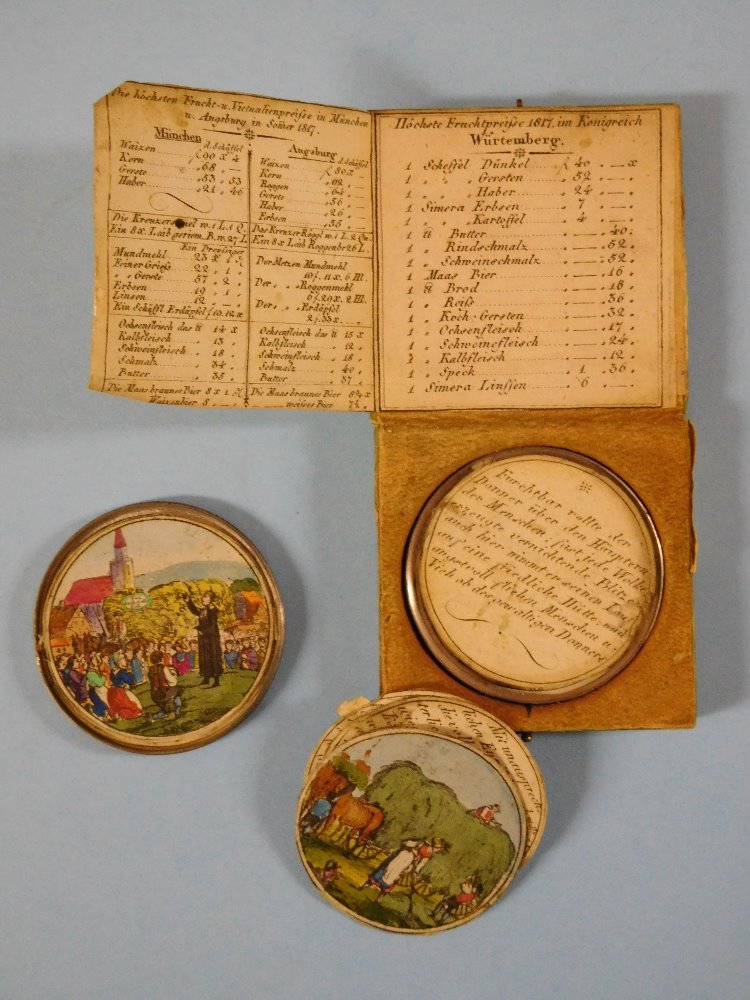 Die höchsten Frucht-u. Victualienpreisse in München
u. Augsburg in Somer 1817.
München
d. Schäffel
Waizen f. 90 x 4
Korn „ 68 —
Gerste „ 53 „ 53
Haber „ 21 „ 46
Augsburg
d. Schäffel
Waizen f. 80 x
Kern „ 82 „
Roggen „ 64 „
Gerste „ 56 „
Haber „ 26 „
Erbsen „ 56 „
Die Kreuzersemel w. 1 L. 1 Q.
Ein 8 x Laib geriem. B. w. 27 L.
Das Kreuzer Roggl w. 1 L. 2 Qu.
Ein 8 x Laib Roggenbr 26 L.
Ein Dreysiger
Mundmehl 23 x
Feiner Gries 22 „ 1 „
„ Gerste 37 „ 2 „
Erbsen 19 „ 1 „
Linsen 12 „ — „
Ein Schäffl Erdäpfel f. 10. 12 x
Der Metzen Mundmehl
10 f. 11 x. 6 Hl.
Der „ „ Roggenmehl
6 f. 20 x. 2 Hl.
Der „ „ Erdäpfel
2 f. 33 x.
Ochsenfleisch das ℔ 14 x
Kalbfleisch „ 13 „
Schweinfleisch „ 18 „
Schmalz „ 34 „
Butter „ 33 „
Ochsenfleisch das ℔ 15 x
Kalbfleisch „ 12 „
Schweinfleisch „ 18 „
Schmalz „ 40 „
Butter „ 37 „
Die Maas braunes Bier 8 x 1
Waizenbier 8 „ —
Die Maas braunes Bier
weises Bier
Höchste Fruchtpreisse 1817. im Königreich
Würtemberg.
1 Scheffel Dünkel f. 40 „ — x
1 „ „ Gersten „ 52 „ — „
1 „ „ Haber „ 24 „ — „
1 Simera Erbsen „ 7 „ — „
1 „ „ Kartoffel „ 4 „ — „
1 ℔ Butter „ — „ 40 „
1 „ Rindschmalz „ — „ 52 „
1 „ Schweinschmalz „ — „ 52 „
1 Maas Bier „ — „ 16 „
1 ℔ Brod „ — „ 18 „
1 „ Reiss „ — „ 36 „
1 „ Koch-Gersten „ — „ 32 „
1 „ Ochsenfleisch „ — „ 17 „
1 „ Schweinefleisch „ — „ 24 „
1 „ Kalbfleisch „ — „ 12 „
1 „ Speck „ 1 „ 36 „
1 Simera Linssen „ 6 „ — „
Furchtbar rollte der
Donner über den Häuptern
der Menschen, fast jede Wolke
erzeugte vernichtende Blitze
auch hier nimmt er seinen Lauf
auf eine friedliche Hütte, und
angstvoll fliehen Menschen u:
Vieh ob des gewaltigen Donners
Mit unaussprech-